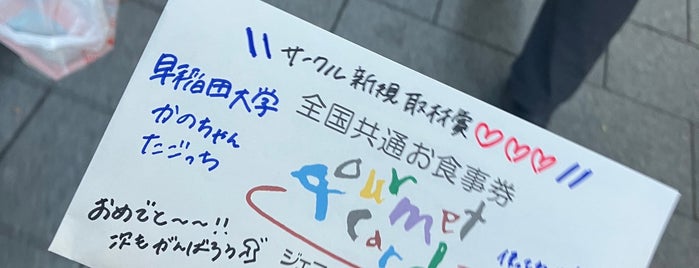 サークル新規取材賞♡♡♡
早稲田大学
かのちゃん
たごっち
全国共通お食事券
gourmet
card
おめでと〜〜!!
次もがんばろう
ジェフ